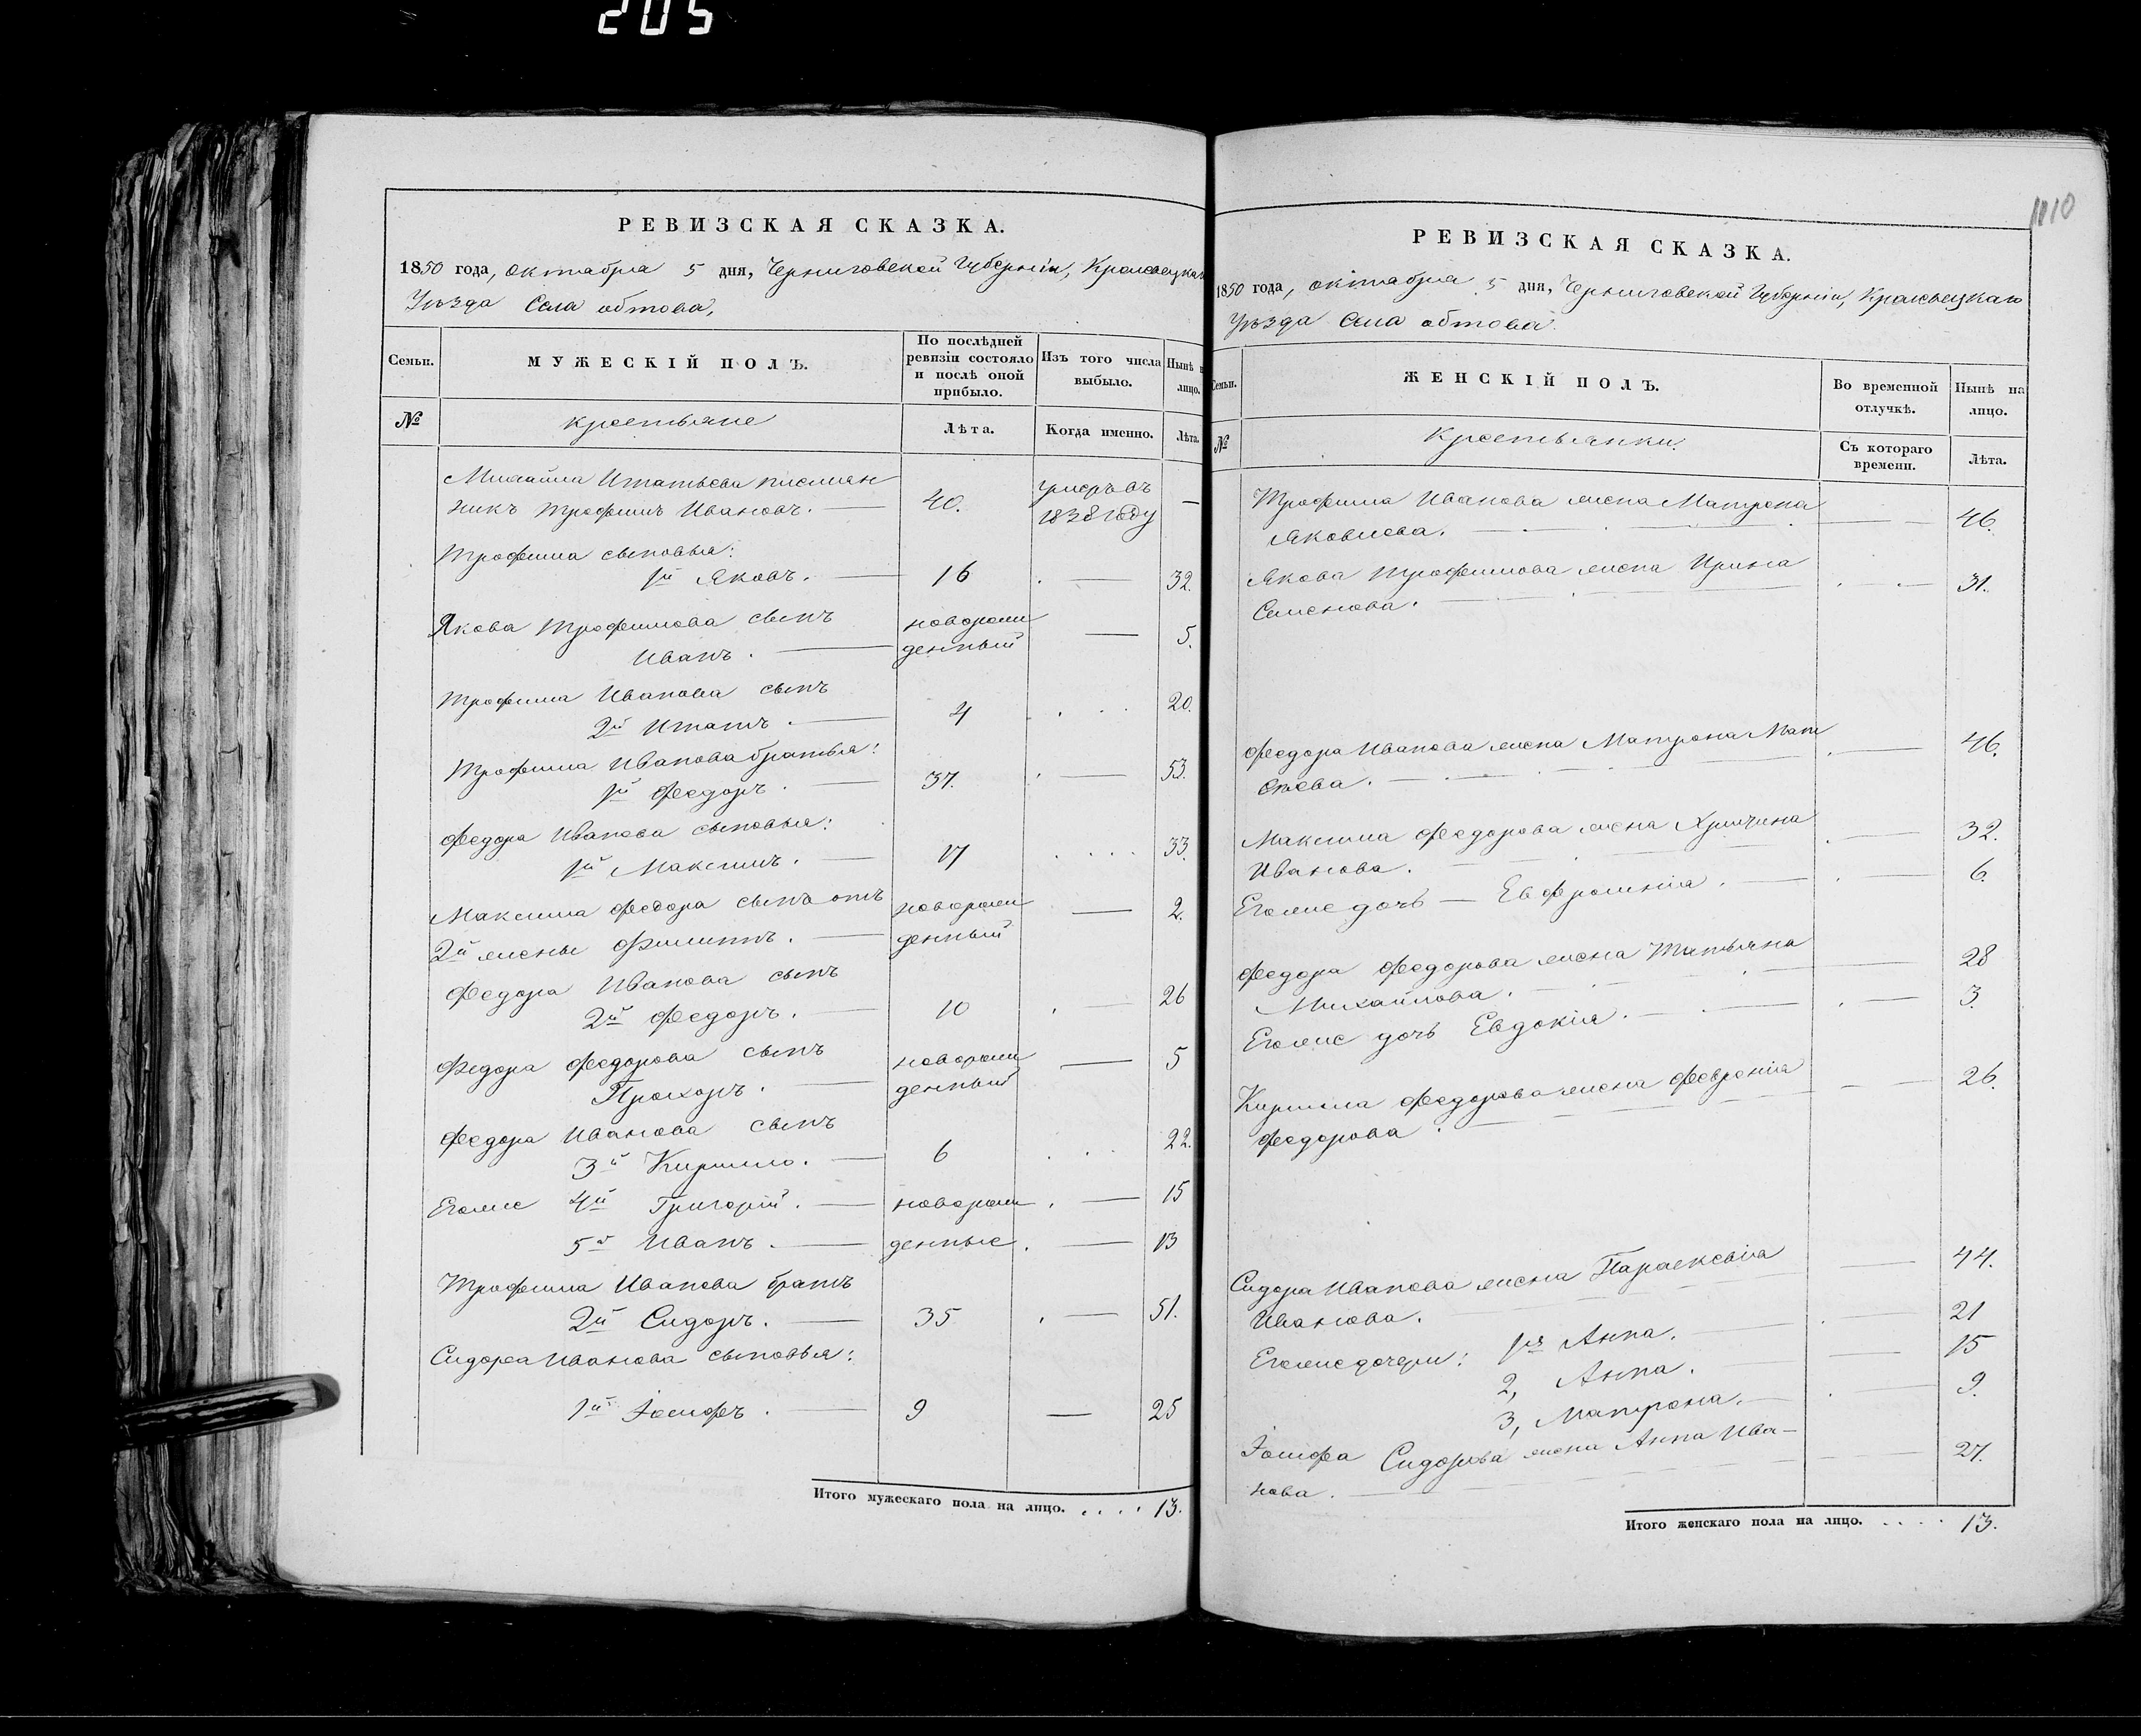 205
РЕВИЗСКАЯ СКАЗКА.
1850 года, октября 5 дня, Черниговской Губерніи, Кролевецкаго
Уѣзда Села обтова,
Семьи.
МУЖЕСКІЙ ПОЛЪ.
По послѣдней ревизіи состояло и послѣ оной прибыло.
Изъ того числа выбыло.
Нынѣ на лицо.
№
крестьяне
Лѣта.
Когда именно.
Лѣта.
Михайла Игнатьева племян
никъ Трофимъ Ивановъ. 40. умеръ въ 1838 году —
Трофима сыновья:
1й Яковъ. 16 32.
Якова Трофимова сынъ
Иванъ. новорож денный 5.
Трофима Иванова сынъ
2й Игнатъ. 4 20.
Трофима Иванова братья:
1й Федоръ. 37. 53.
Федора Иванова сыновья:
1й Максимъ. 17 33.
Максима Федора сынъ отъ
2й жены Филиппъ. новорож денный 2.
Федора Иванова сынъ
2й Федоръ. 10 26
Федора Федорова сынъ
Прохоръ. новорож денный 5
Федора Иванова сынъ
3й Кирилло. 6 22.
Егоже 4й Григорій. новорож 15
5й Иванъ. денные. 13
Трофима Иванова братъ
2й Сидоръ. 35 51.
Сидора Иванова сыновья:
1й Іосифъ. 9 25
Итого мужескаго пола на лицо. . . . . 13.
1110
РЕВИЗСКАЯ СКАЗКА.
1850 года, октября 5 дня, Черниговской Губерніи, Кролевецкаго
Уѣзда Села обтова.
Семьи.
ЖЕНСКІЙ ПОЛЪ.
Во временной отлучкѣ.
Нынѣ на лицо.
№
Крестьянки.
Съ котораго времени.
Лѣта.
Трофима Иванова жена Матрона
Яковлева. 46.
Якова Трофимова жена Ирина
Семенова. 31.
Федора Иванова жена Матрона Мат
Максима Федорова жена Христина
Иванова. 32.
Егоже дочь — Евфросинія. 6.
Федора Федорова жена Татьяна
Михайлова. 28
Егоже дочь Евдокія. 3.
Кирилла Федорова жена Февронія
Федорова. 26.
Сидора Иванова жена Параскевія
Иванова. 44.
Егоже дочери: 1я Анна. 21
2, Анна. 15
3, Матрона. 9.
Іосифа Сидорова жена Анна Ива-
нова. 27.
Итого женскаго пола на лицо. . . . . 13.